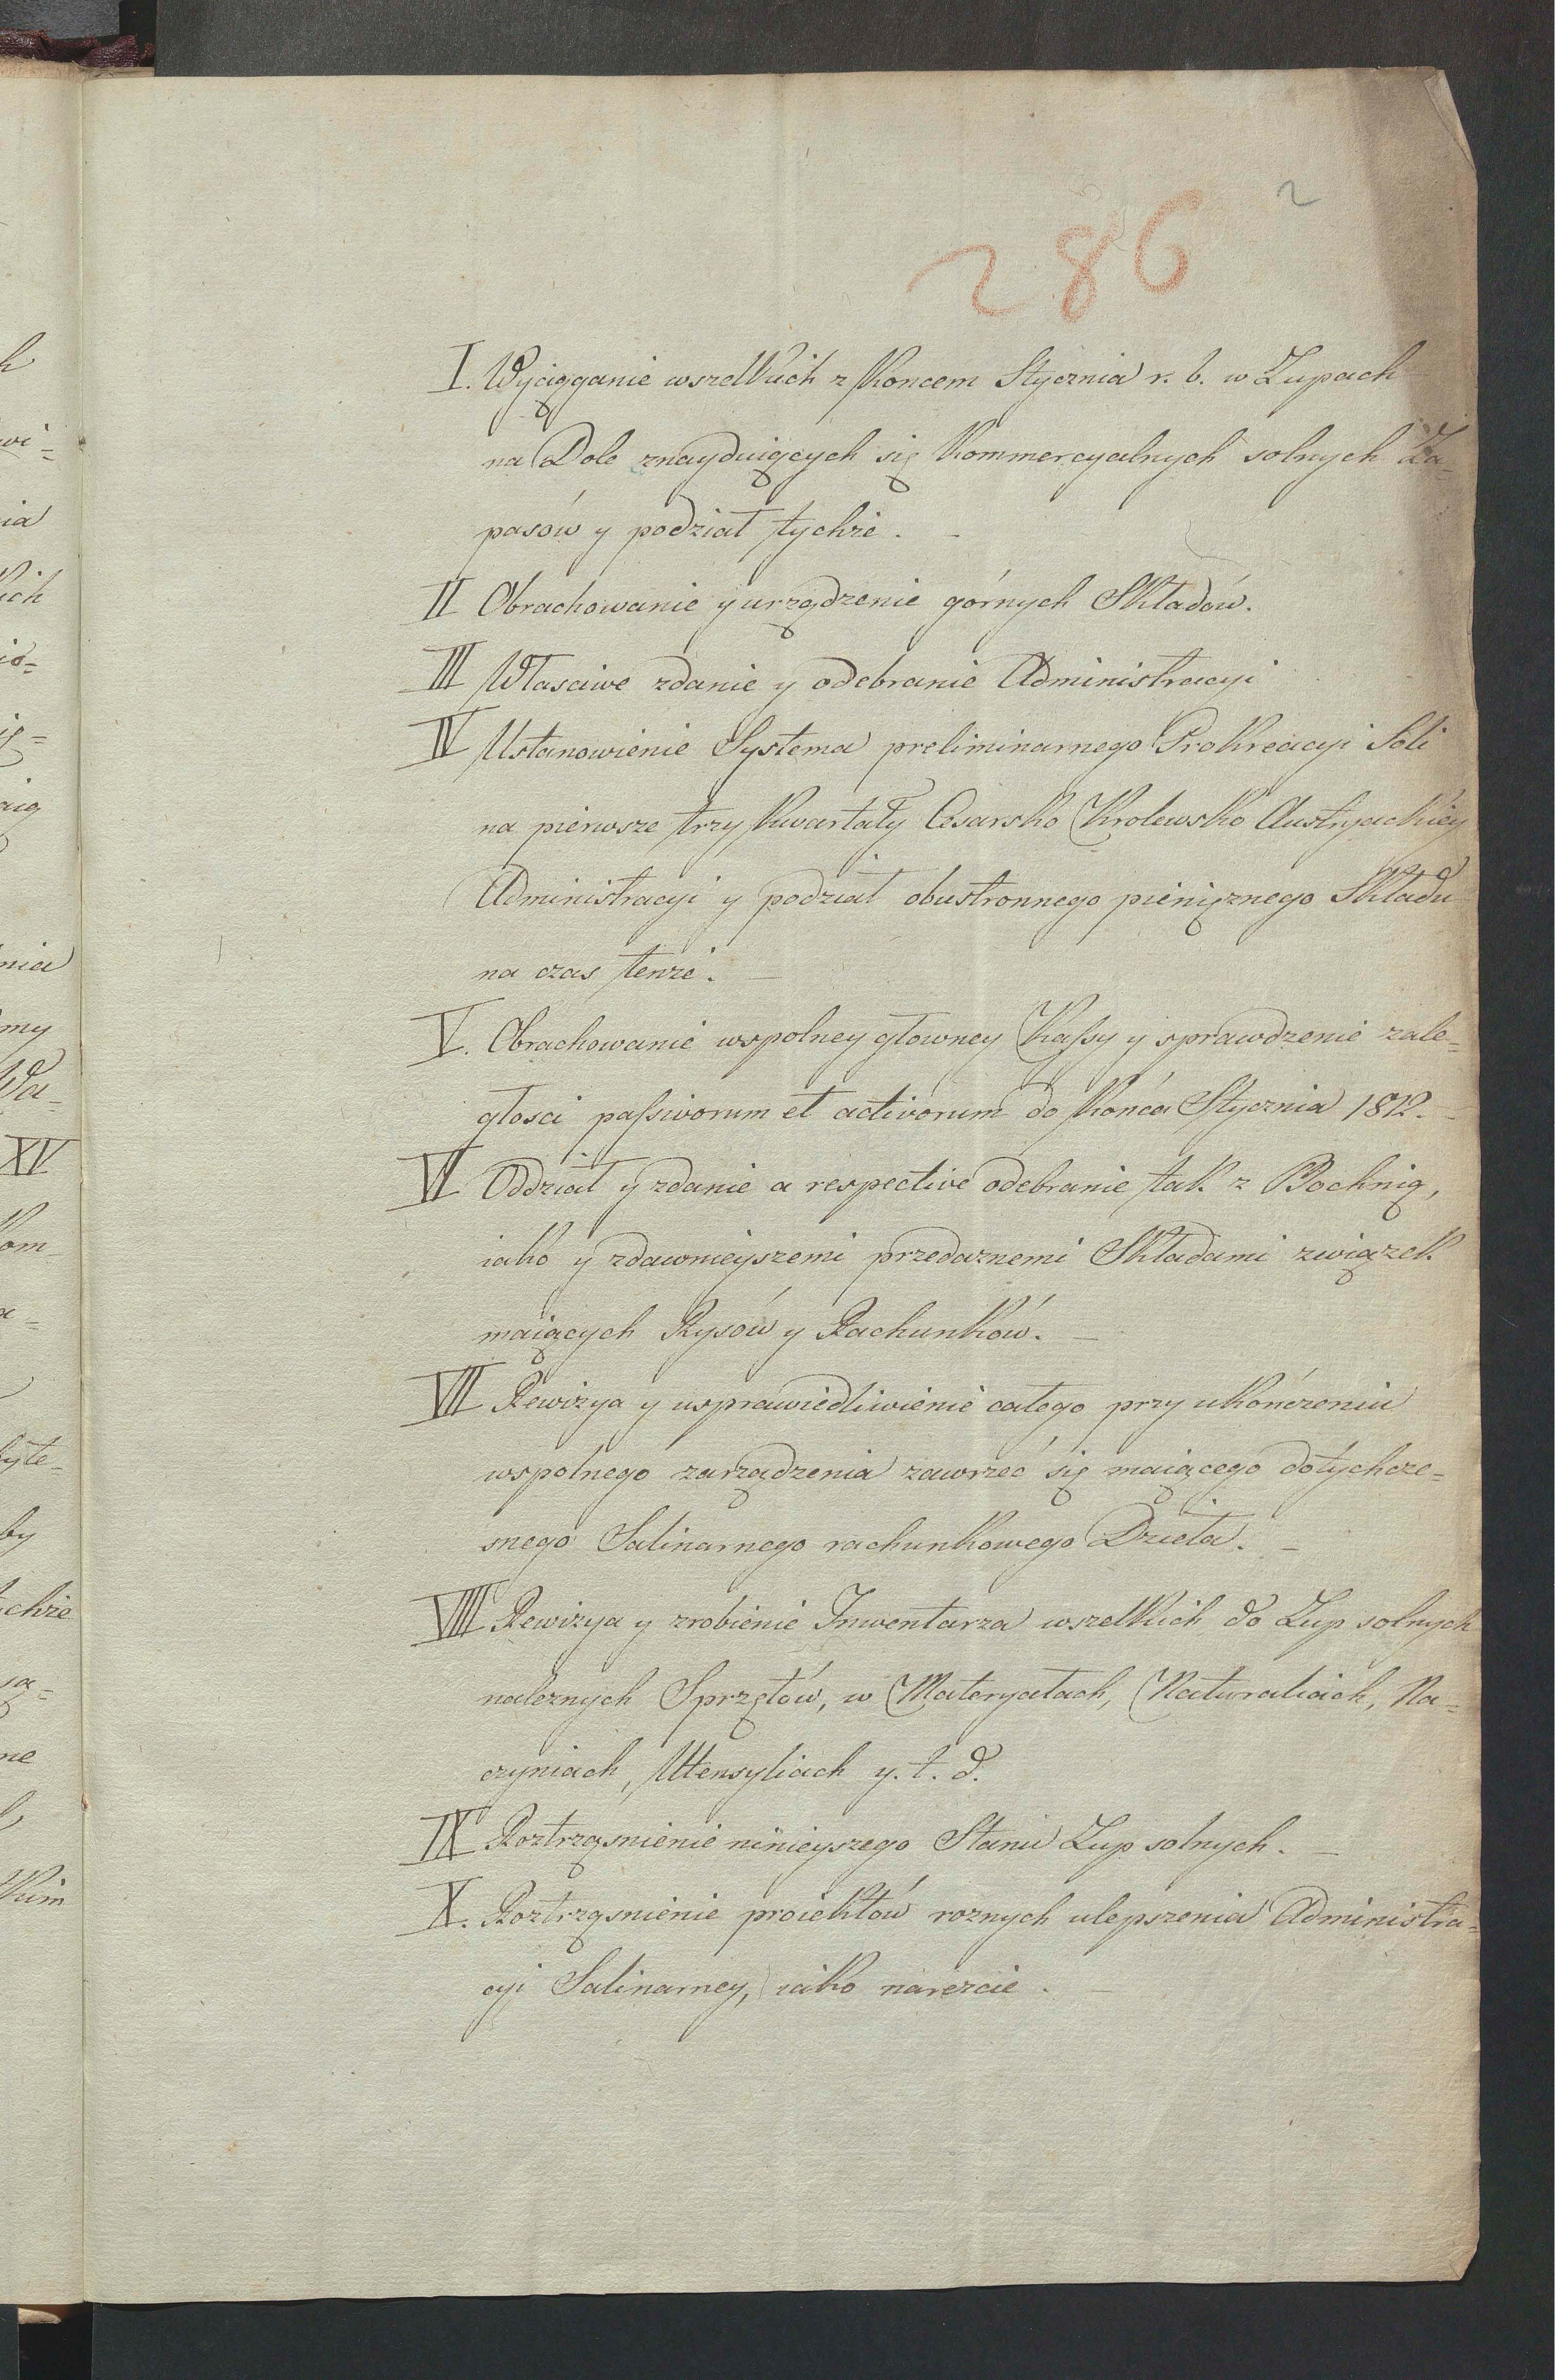 2
286
I. Wyciąganie wszelkich z Koncem Stycznia r. b. w Zupach
na Dole znayduiących się Kommercyalnych solnych Za=
pasów y podział tychże. -
II Obrachowanie y urządzenie górnych Składów.
III Własciwe zdanie y odebranie Administracyi
IV Ustanowienie Systema preliminarnego Prokreacyi Soli
na pierwsze trzy Kwartały Cesarsko Krolewsko Austryackiey
Administracyi y podział obustronnego pieniężnego Składu
na czas tenże. -
V. Obrachowanie wspolney głowney Kassy y sprawdzenie zale=
głosci passivorum et activorum do Końca Stycznia 1812. -
VI Oddział y zdanie a respective odebranie tak z Bochnią,
iako y zdawnieyszemi przedaznemi Składami związek
maiących Rysów y Rachunków. -
VII Rewizya y usprawiedliwienie całego przy ukończeniu
wspolnego zarządzenia zawrzeć się maiącego dotychcze=
snego Salinarnego rachunkowego Dzieła. -
VIII Rewizya y zrobienie Inwentarza wszelkich do Zup solnych
naleznych Sprzętów, w Materyałach, Naturaliach, Na=
czyniach, Utensyliach y. t. d.
IX Roztrząsnienie ninieyszego Stanu Zup solnych. -
X. Roztrząsnienie proiektów roznych ulepszenia Administra=
cyi Salinarney, iako nareszcie. -
h
wi=
ia
kich
io=
ią=
aią
nia
my
Wa=
XV
Kom
a=
byte=
by
tchże
sa=
ne
kim